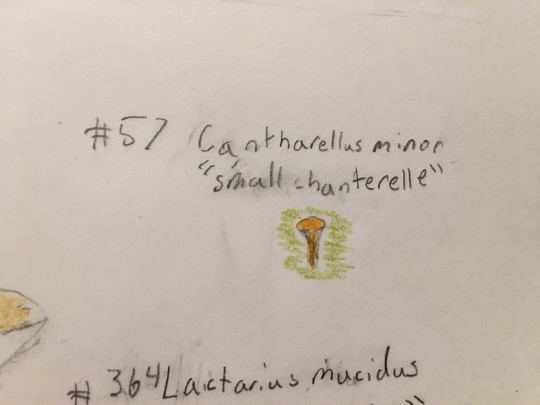 #57 Cantharellus minor
"small chanterelle"
#364 Lactarius mucidus